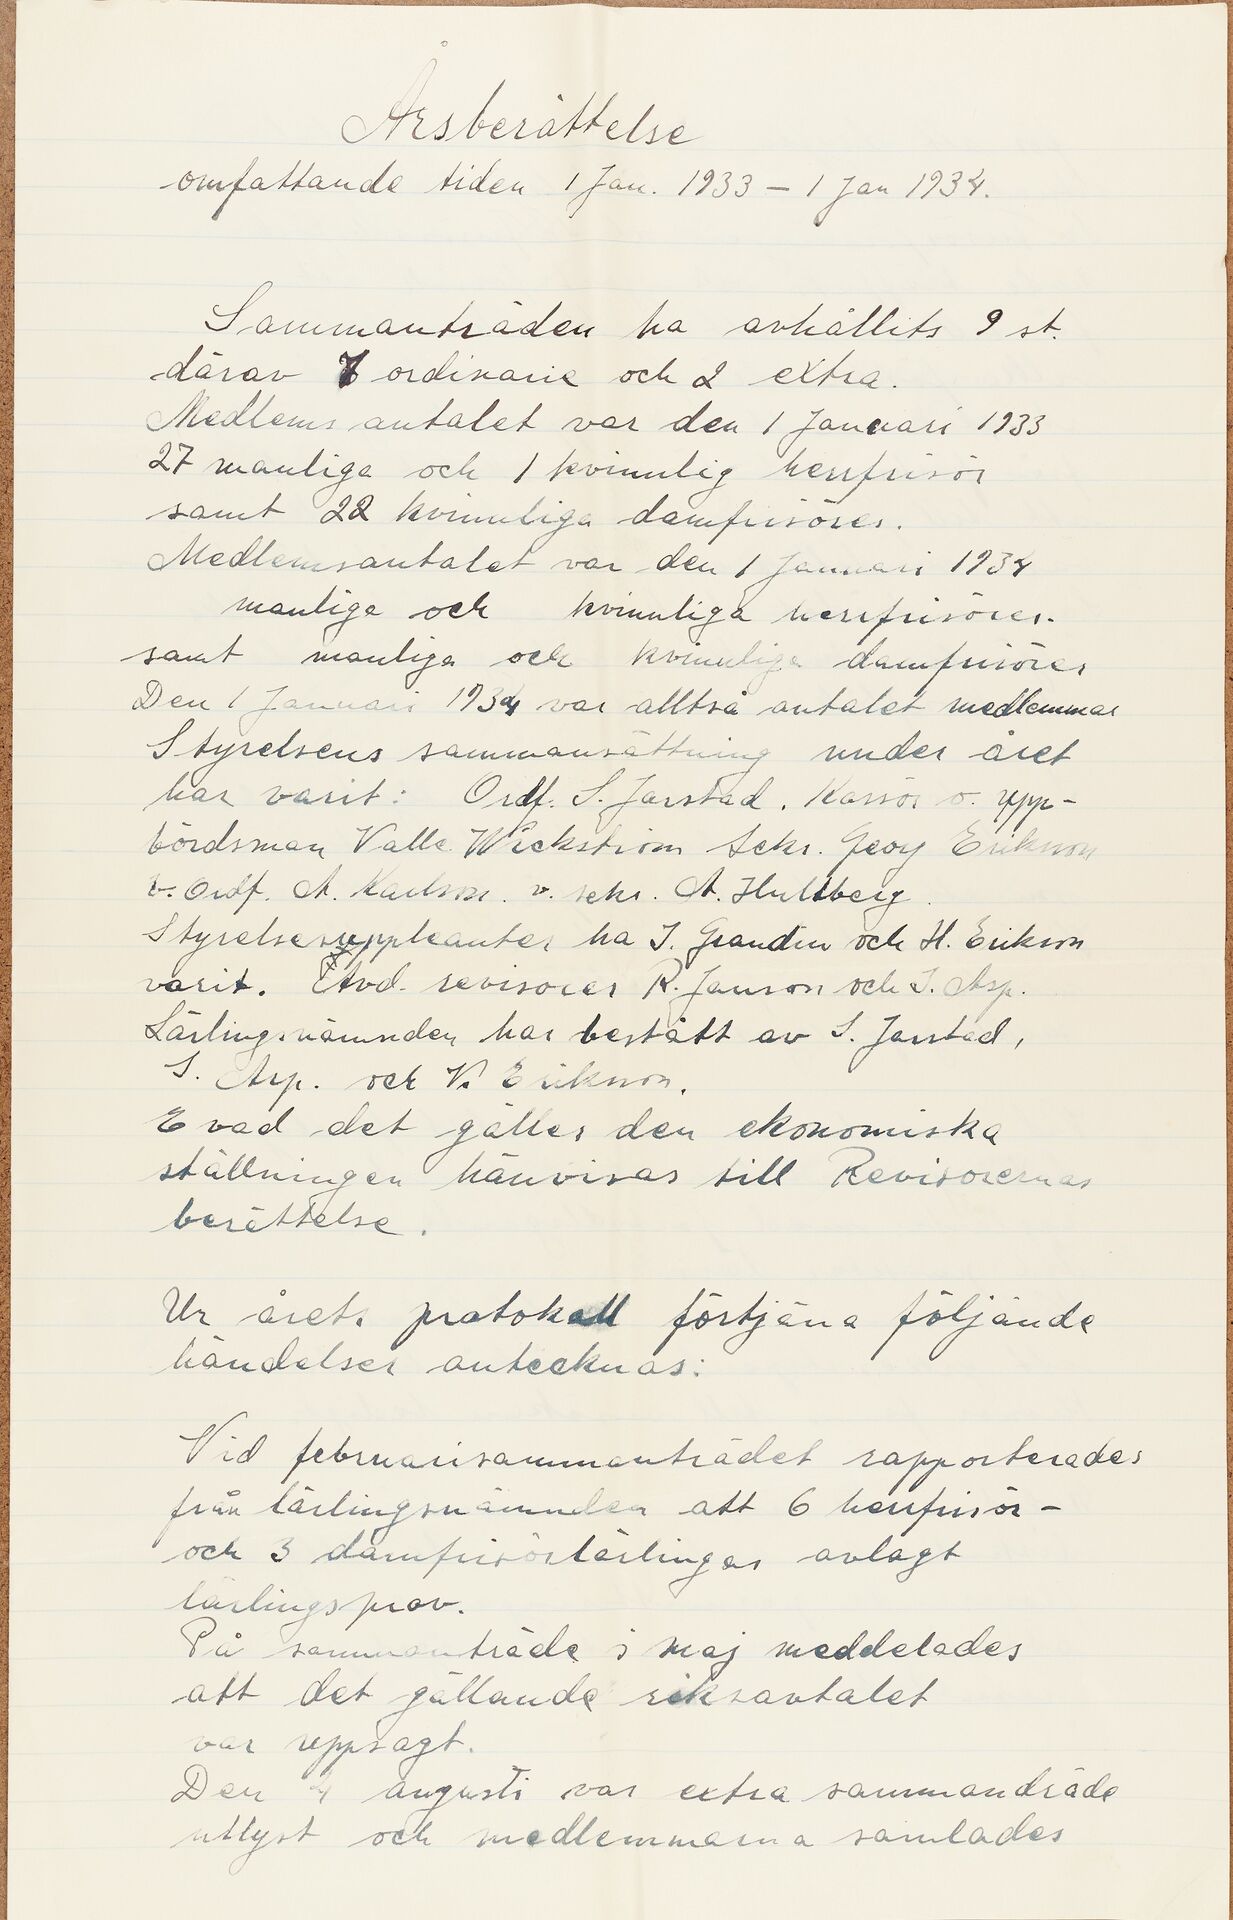 Årsberättelse
omfattande tiden 1 Jan. 1933 – 1 Jan 1934.
Sammanträden ha avhållits 9 st.
därav 7 ordinarie och 2 extra.
Medlems antalet var den 1 Januari 1933
27 manliga och 1 kvinnlig herrfrisör
samt 22 kvinnliga damfrisörer.
Medlemsantalet var den 1 Januari 1934
manliga och kvinnliga herrfrisörer.
samt manliga och kvinnliga damfrisörer
Den 1 Januari 1934 var alltså antalet medlemmar
Styrelsens sammansättning under året
har varit: Ordf. S. Jarstad. Kassör o. upp-
bördsman Valle Wickström Sekr. Georg Erikson
v. Ordf. A. Karlson. v. sekr. A. Hultberg.
Styrelsesuppleanter ha J. Grandin och H. Erikson
varit. Avd. revisorer R. Janson och S. Asp.
Lärlingsnämnden har bestått av S. Jarstad,
S. Asp. och V. Erikson.
E vad det gäller den ekonomiska
ställningen hänvisas till Revisorernas
berättelse.
Ur årets protokoll förtjäna följande
händelser antecknas:
Vid februarisammanträdet rapporterades
från lärlingsnämnden att 6 herrfrisör-
och 3 damfrisörlärlingar avlagt
lärlingsprov.
På sammanträde i maj meddelades
att det gällande riksavtalet
var uppsagt.
Den 4 augusti var extra sammandräde
utlyst och medlemmarna samlades